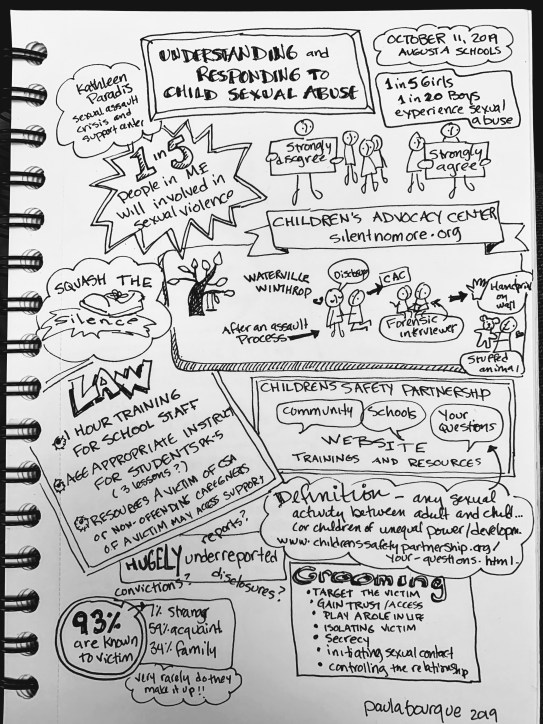 UNDERSTANDING and
RESPONDING TO
CHILD SEXUAL ABUSE
OCTOBER 11, 2019
AUGUSTA SCHOOLS
Kathleen
Paradis
sexual assault
crisis and
support center
1 in 5 Girls
1 in 20 Boys
experience sexual
abuse
1 in 5
people in ME
will involved in
sexual violence
Strongly
disagree
Strongly
agree
CHILDREN'S ADVOCACY CENTER
silentnomore.org
SQUASH THE
Silence
WATERVILLE
WINTHROP
After an assault
Process
Disclosure
CAC
Forensic
interviewer
Handprint
on
wall
Stuffed
animal
LAW
1 HOUR TRAINING
FOR SCHOOL STAFF
AGE APPROPRIATE INSTRUCT
FOR STUDENTS PK-5
(3 lessons?)
RESOURCES A VICTIM OF CSA
OR NON-OFFENDING CAREGIVERS
OF A VICTIM MAY ACCESS SUPPORT
CHILDREN'S SAFETY PARTNERSHIP
Community
Schools
Your
Questions
WEBSITE
TRAININGS AND RESOURCES
Definition - any sexual
activity between adult and child...
(or children of unequal power/developm.
www.childrenssafetypartnership.org/
your-questions.html.
reports?
HUGELY underreported
convictions?
disclosures?
93%
are known
to victim
7% stranger
59% acquaint
34% family
very rarely do they
make it up!!
Grooming
• TARGET THE VICTIM
• GAIN TRUST/ACCESS
• PLAY A ROLE IN LIFE
• ISOLATING VICTIM
• Secrecy
• initiating sexual contact
• controlling the relationship
paulabourque 2019